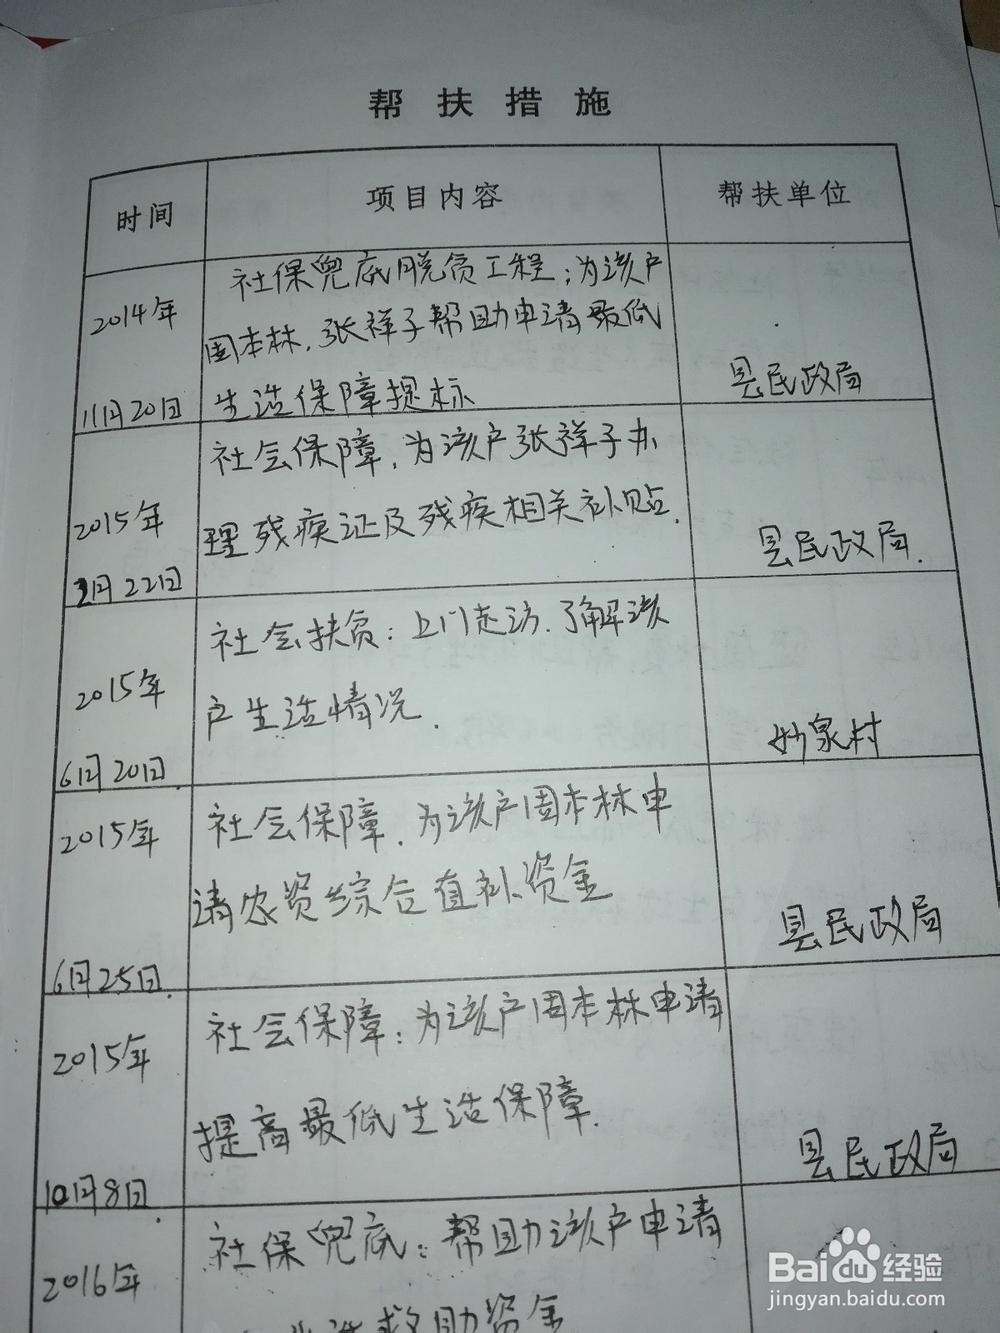 帮扶措施
时间 项目内容 帮扶单位
社保兜底脱贫工程；为该户
2014年
周本林，张祥子帮助申请最低
县民政局
11月20日 生活保障提标
社会保障，为该户张祥子办
2015年
理残疾证及残疾相关补贴．
县民政局．
1月22日
社会扶贫：上门走访．了解该
2015年
户生活情况．
妙泉村
6月20日
社会保障．为该户周本林申
2015年
请农资综合直补资金
县民政局
6月25日．
社会保障：为该户周本林申请
2015年
提高最低生活保障．
县民政局
10月8日．
社保兜底：帮助该户申请
2016年
救助资金
Baidu经验
jingyan.baidu.com